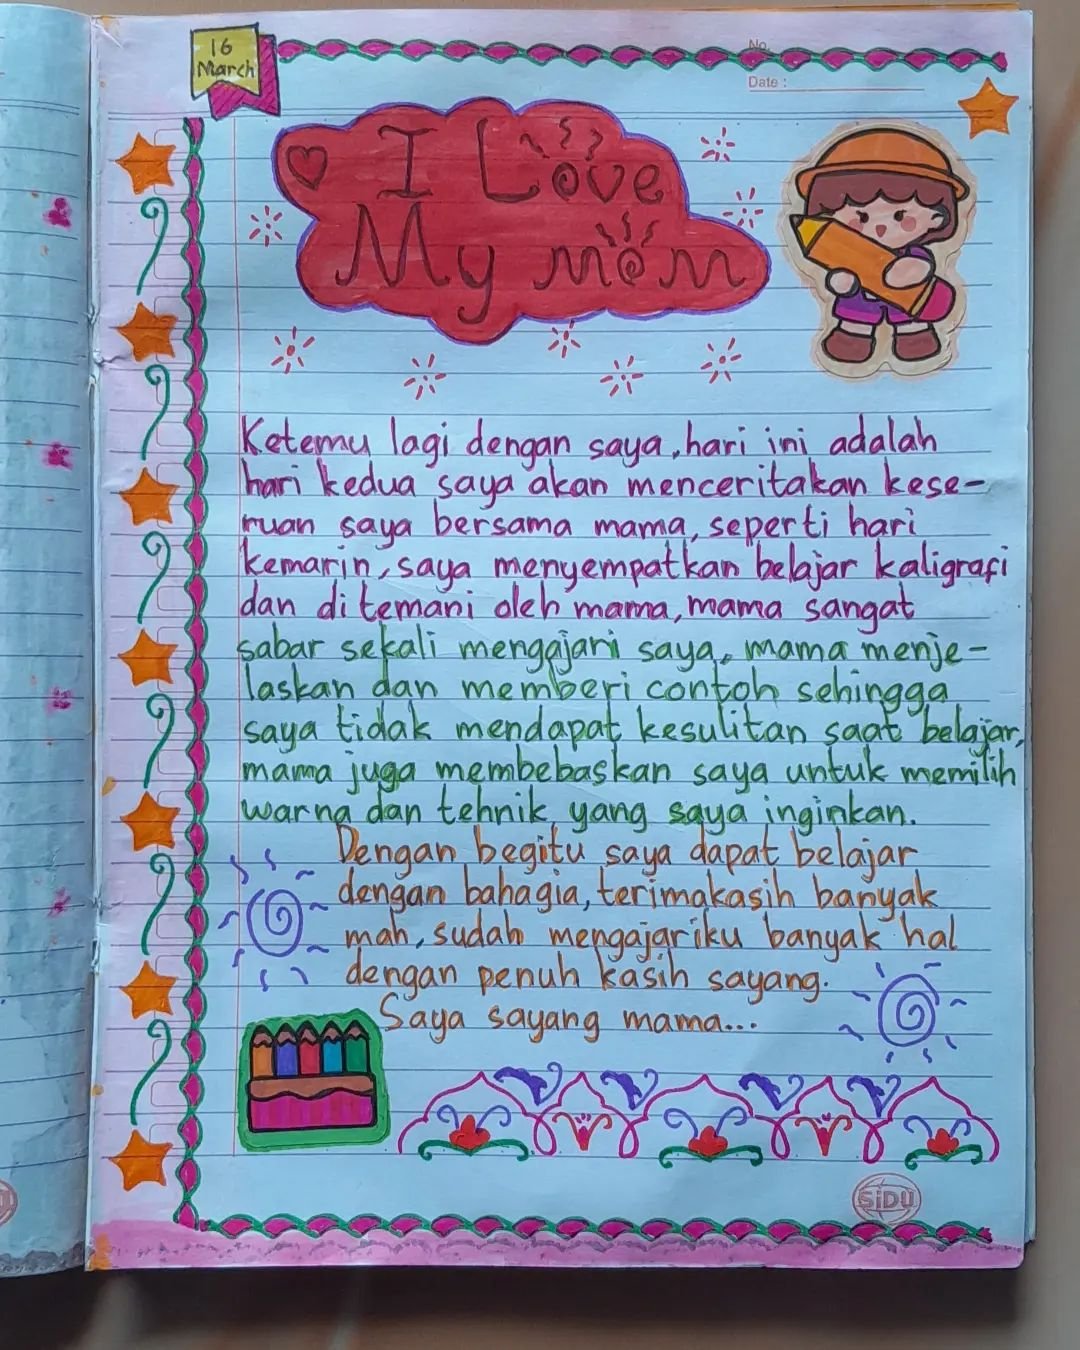 16
March
No.
Date :
I Love
My mom
Ketemu lagi dengan saya, hari ini adalah
hari kedua saya akan menceritakan kese-
ruan saya bersama mama, seperti hari
kemarin, saya menyempatkan belajar kaligrafi
dan di temani oleh mama, mama sangat
sabar sekali mengajari saya, mama menje-
laskan dan memberi contoh sehingga
saya tidak mendapat kesulitan saat belajar,
mama juga membebaskan saya untuk memilih
warna dan tehnik yang saya inginkan.
Dengan begitu saya dapat belajar
dengan bahagia, terimakasih banyak
mah, sudah mengajariku banyak hal
dengan penuh kasih sayang.
Saya sayang mama...
SiDU